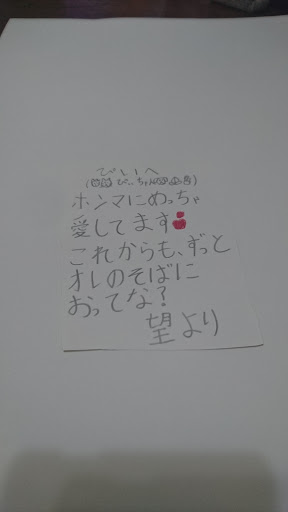 ぴぃへ
ぴ…ちゃん
ホンマにめっちゃ
愛してます
これからも、ずっと
オレのそばに
おってな?
望より